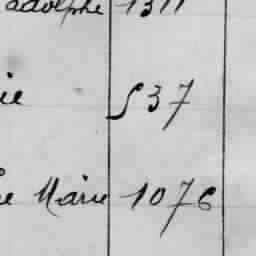 adolphe 1311
ie 537
e Marie 1076